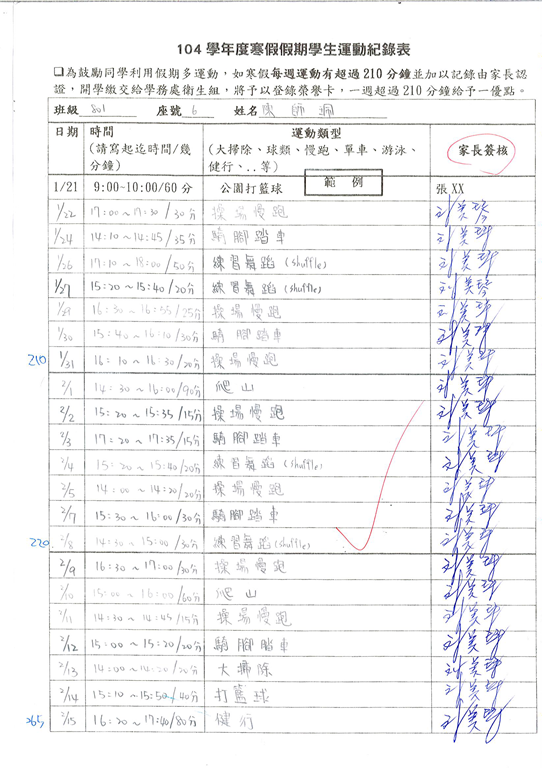 104 學年度寒假假期學生運動紀錄表
□為鼓勵同學利用假期多運動，如寒假每週運動有超過 210 分鐘並加以記錄由家長認
證，開學繳交給學務處衛生組，將予以登錄榮譽卡，一週超過 210 分鐘給予一優點。
班級 801 座號 6 姓名 陳師珮
日期 時間 運動類型 家長簽核
(請寫起迄時間/幾分鐘) (大掃除、球類、慢跑、單車、游泳、健行、..等)
1/21 9:00~10:00/60 分 公園打籃球 範例 張 XX
1/22 17:00~17:30/30分 操場慢跑
1/24 14:10~14:45/35分 騎腳踏車
1/26 17:10~18:00/50分 練習舞蹈(shuffle)
1/27 15:20~15:40/20分 練習舞蹈(shuffle)
1/29 16:30~16:55/25分 操場慢跑
1/30 15:40~16:10/30分 騎腳踏車
210 1/31 16:10~16:30/20分 操場慢跑
2/1 14:30~16:00/90分 爬山
2/2 15:20~15:35/15分 操場慢跑
2/3 17:20~17:35/15分 騎腳踏車
2/4 15:20~15:40/20分 練習舞蹈(shuffle)
2/5 14:00~14:20/20分 操場慢跑
2/7 15:30~16:00/30分 騎腳踏車
220 2/8 14:30~15:00/30分 練習舞蹈(shuffle)
2/9 16:30~17:00/30分 操場慢跑
2/10 15:00~16:00/60分 爬山
2/11 14:30~14:45/15分 操場慢跑
2/12 15:00~15:20/20分 騎腳踏車
2/13 14:00~14:20/20分 大掃除
2/14 15:10~15:50/40分 打籃球
265 2/15 16:20~17:40/80分 健行